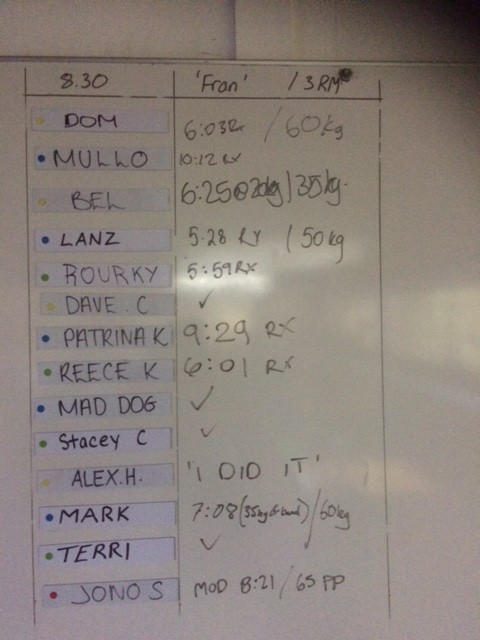 8.30 'Fran' / 3RM
DOM 6:03Rx / 60kg
MULLO 10:12 RX
BEL 6:25@20kg / 35kg.
LANZ 5.28 RX / 50kg
ROURKY 5:59RX
DAVE. C ✓
PATRINA K 9:29 RX
REECE K 6:01 RX
MAD DOG ✓
Stacey C ✓
ALEX.H. 'I DID IT'
MARK 7:08 (35kg / 60kg
TERRI ✓
JONO S MOD 8:21 / 65 PP